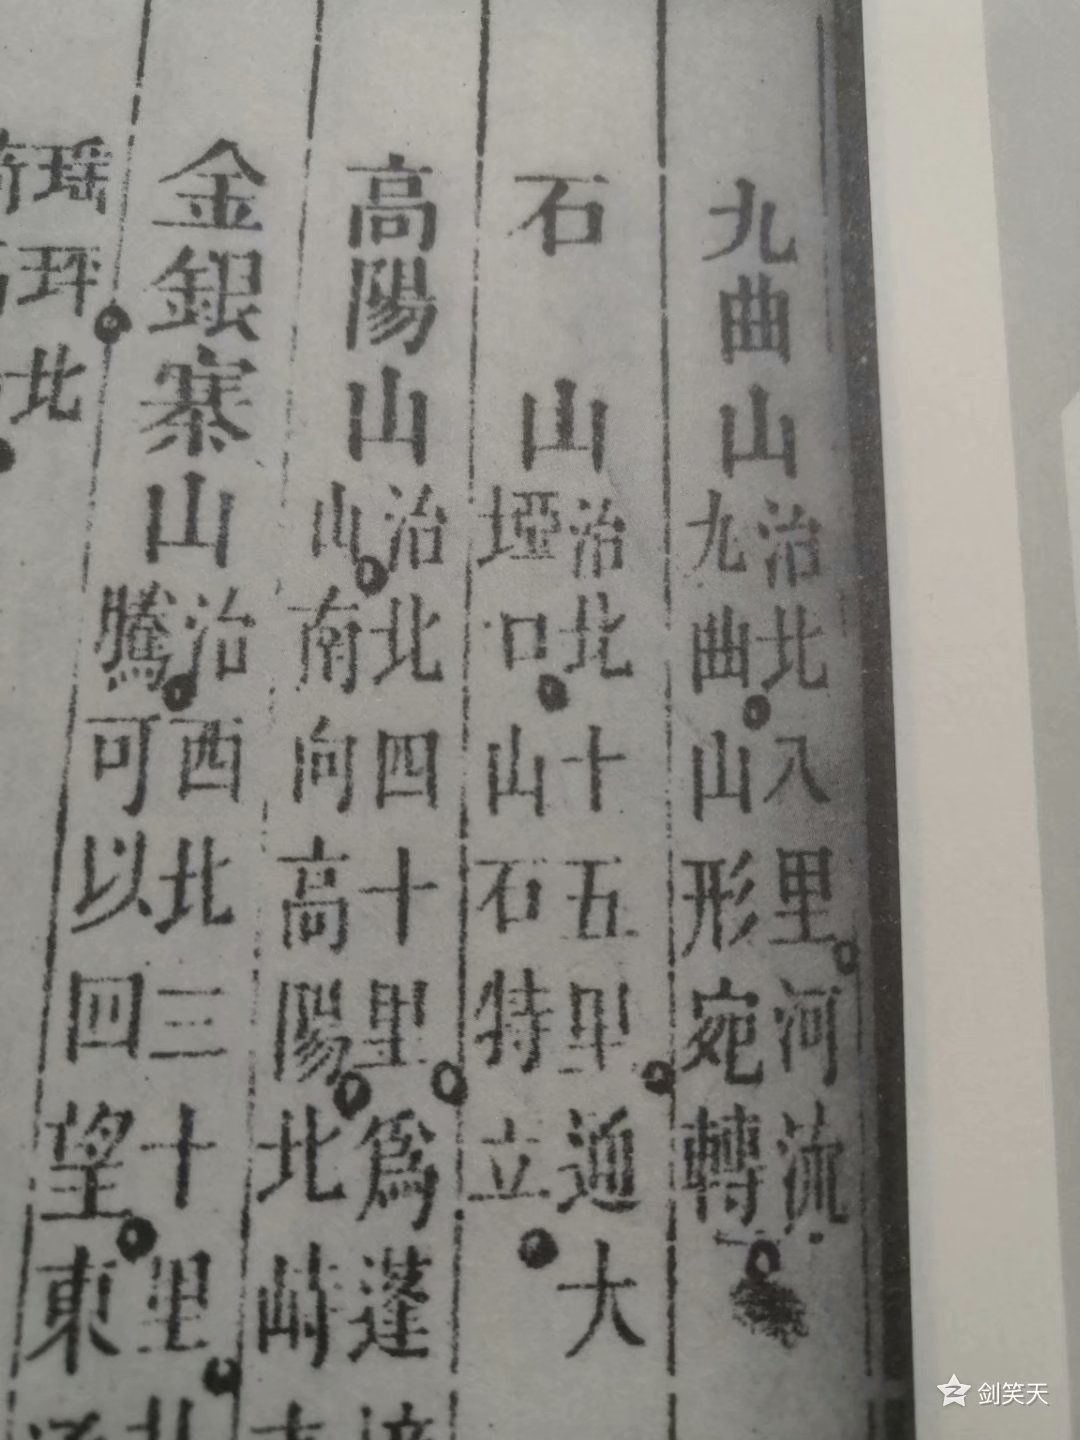 九曲山
治北八里河流
九曲山形宛轉
石山
治北十五里通大
埡口山石特立
高陽山
治北四十里爲蓬
山南向高陽北峙
金銀寨山
治西北三十里北
騰可以回望東
瑶
北
剑笑天